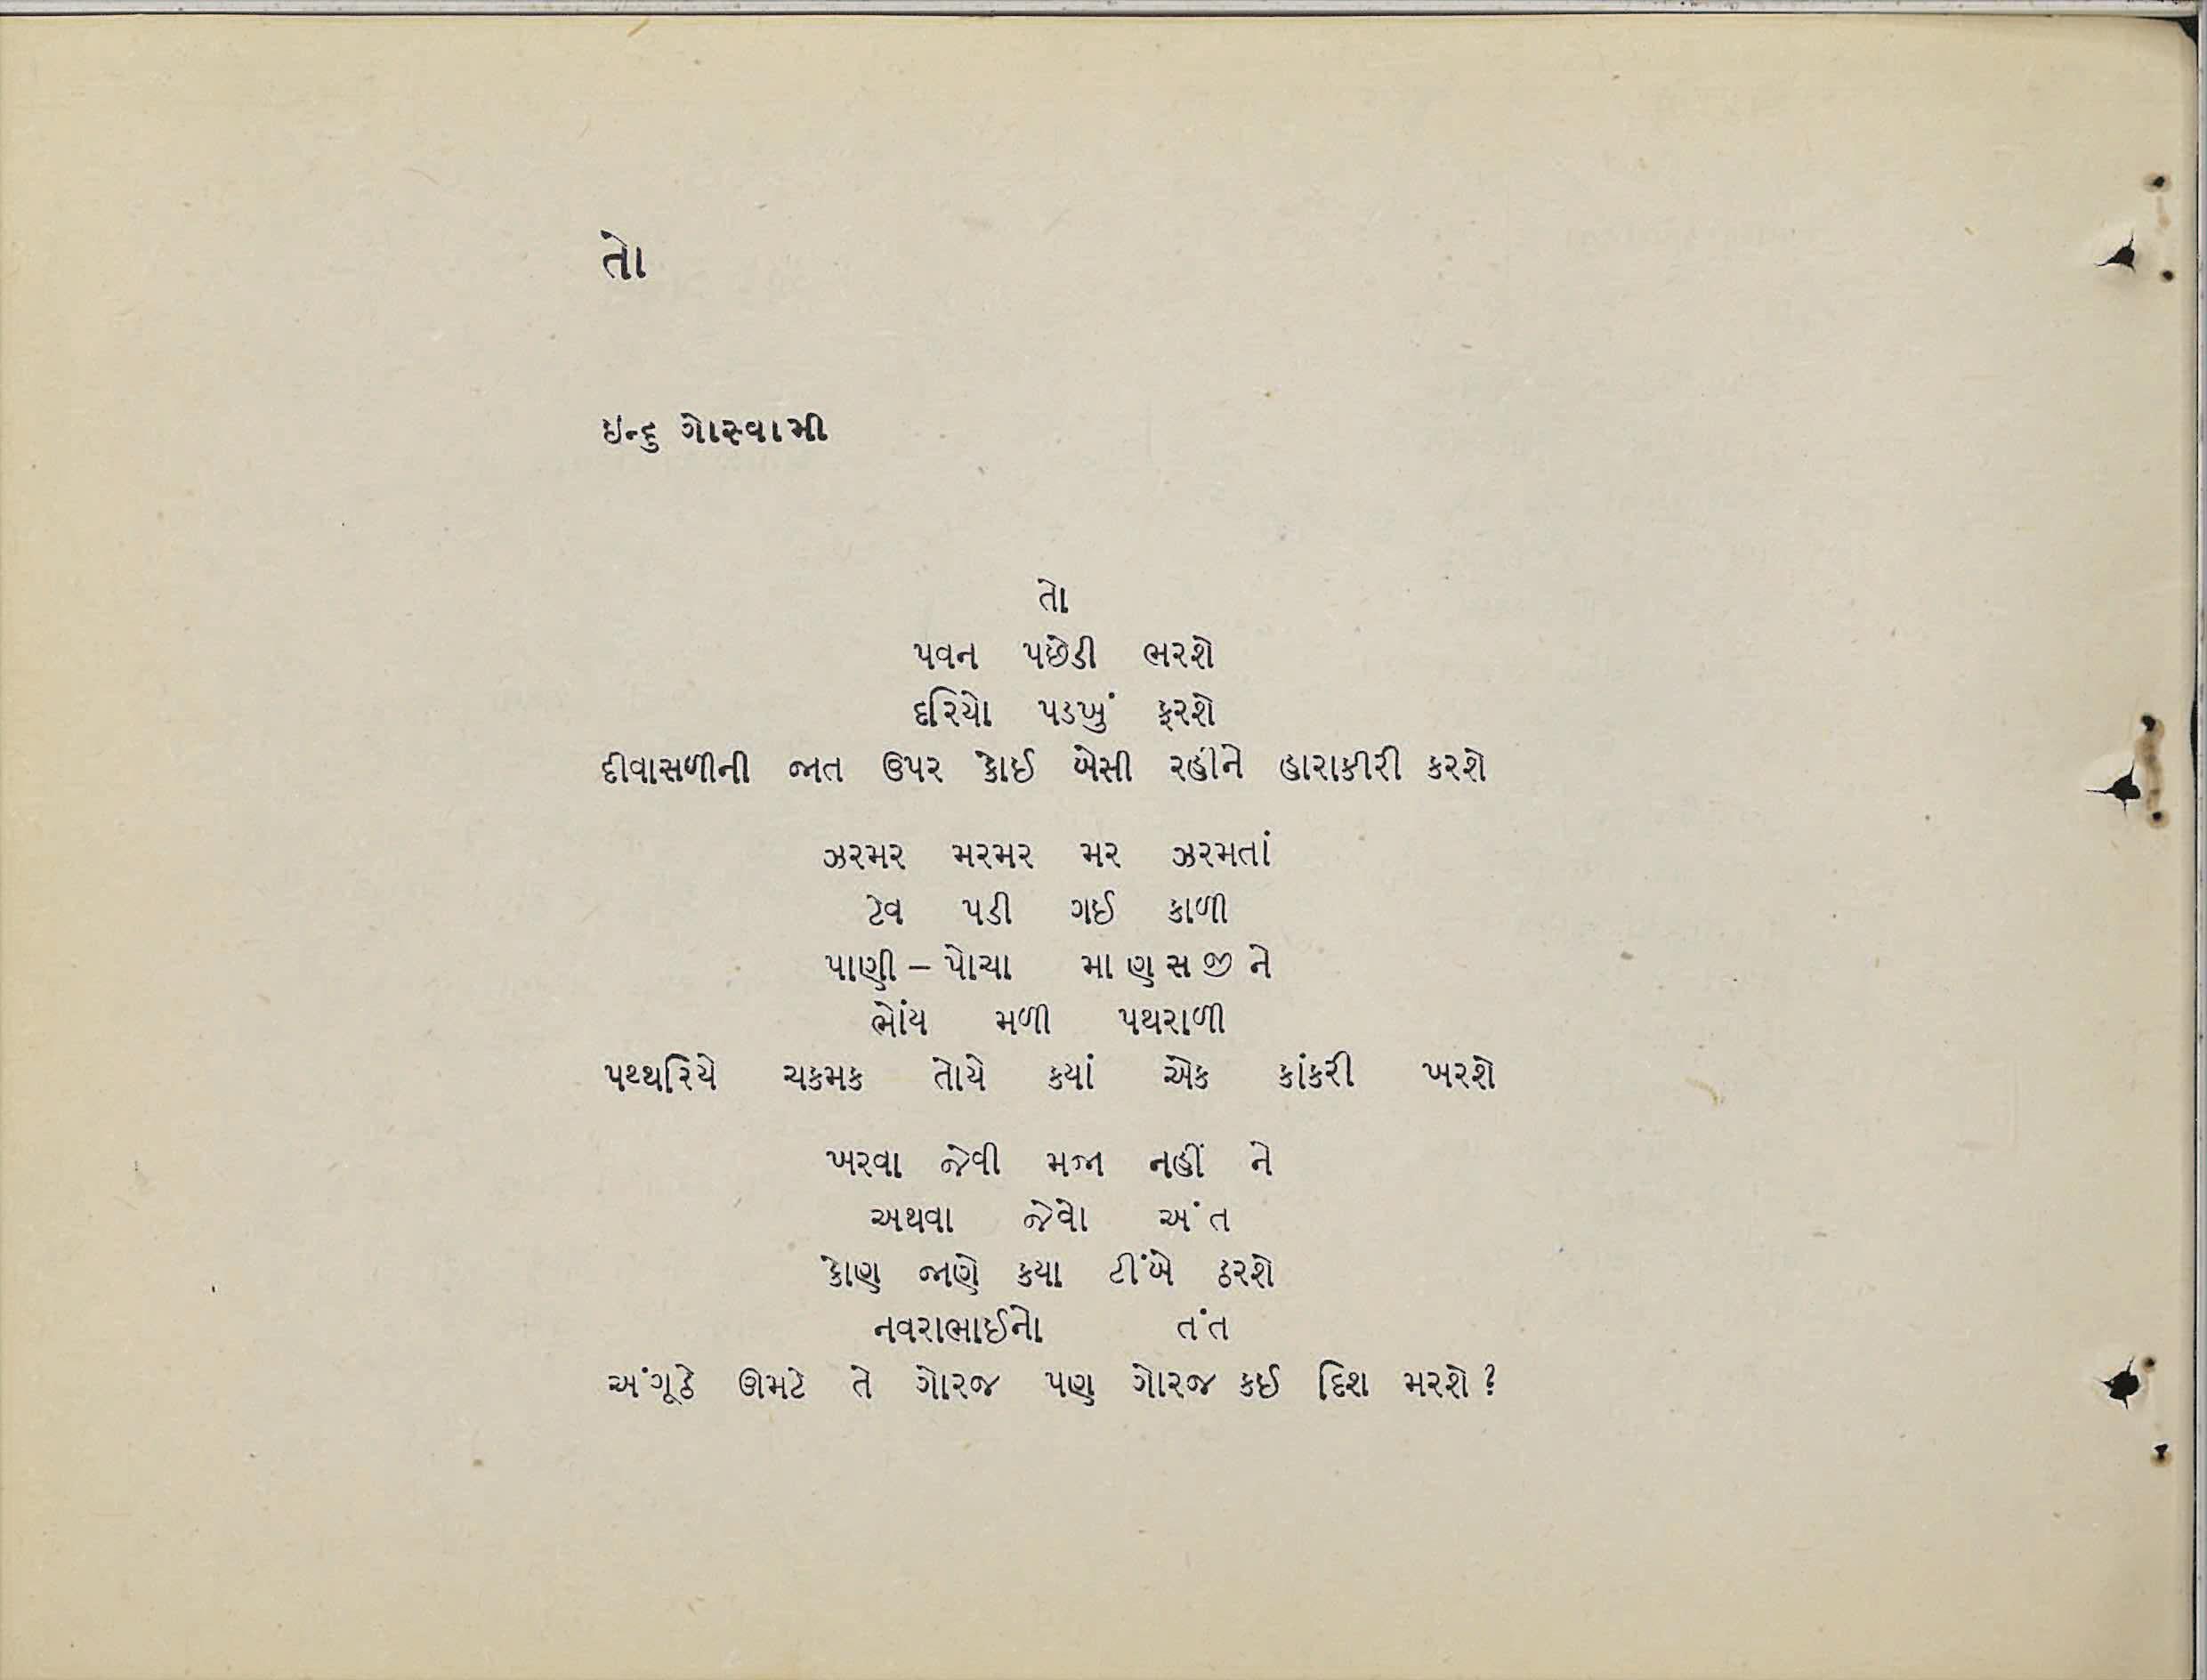 તો
ઇન્દુ ગોસ્વામી
તો
પવન પછેડી ભરશે
દરિયો પડખું ફરશે
દીવાસળીની જાત ઉપર કોઈ બેસી રહીને હારાકીરી કરશે
ઝરમર મરમર મર ઝરમતાં
ટેવ પડી ગઈ કાળી
પાણી – પોચા માણસજીને
ભોંય મળી પથરાળી
પથ્થરિયે ચકમક તોયે કયાં એક કાંકરી ખરશે
ખરવા જેવી મજા નહીં ને
અથવા જેવો અંત
કોણ જાણે કયા ટીંબે ઠરશે
નવરાભાઈનો તંત
અંગૂઠે ઊમટે તે ગોરજ પણ ગોરજ કઈ દિશ મરશે?